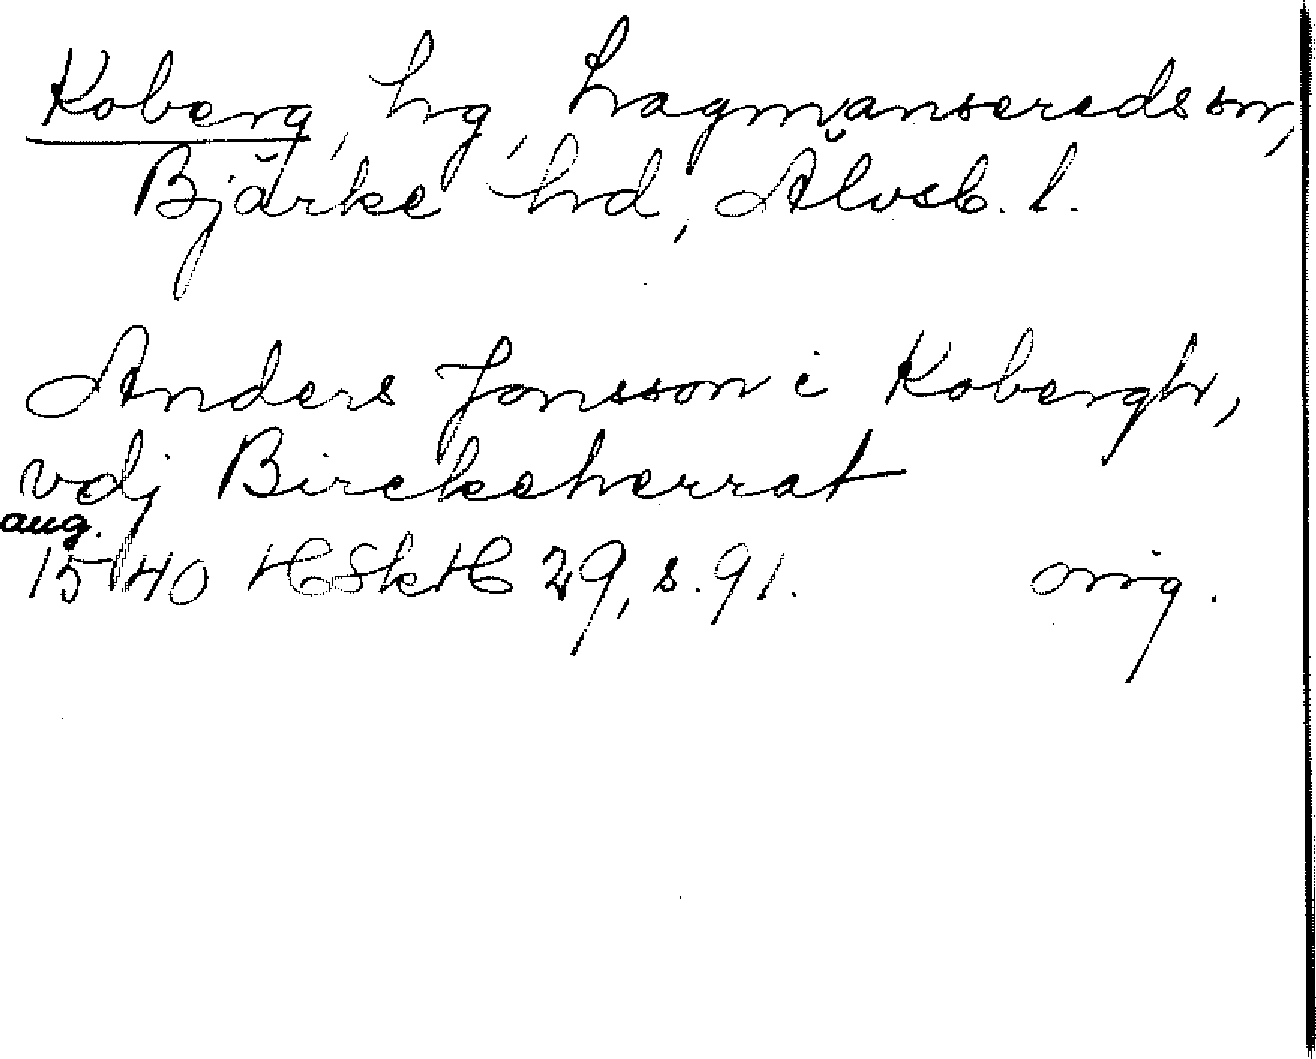 Koberg, hg, Lagmansereds sn,
Bjärke hd, Älvsb. l.
Anders Jonsson i Kobergh,
vdj Birckeherrat
aug.
1540 HSkH 29, s. 91. orig.